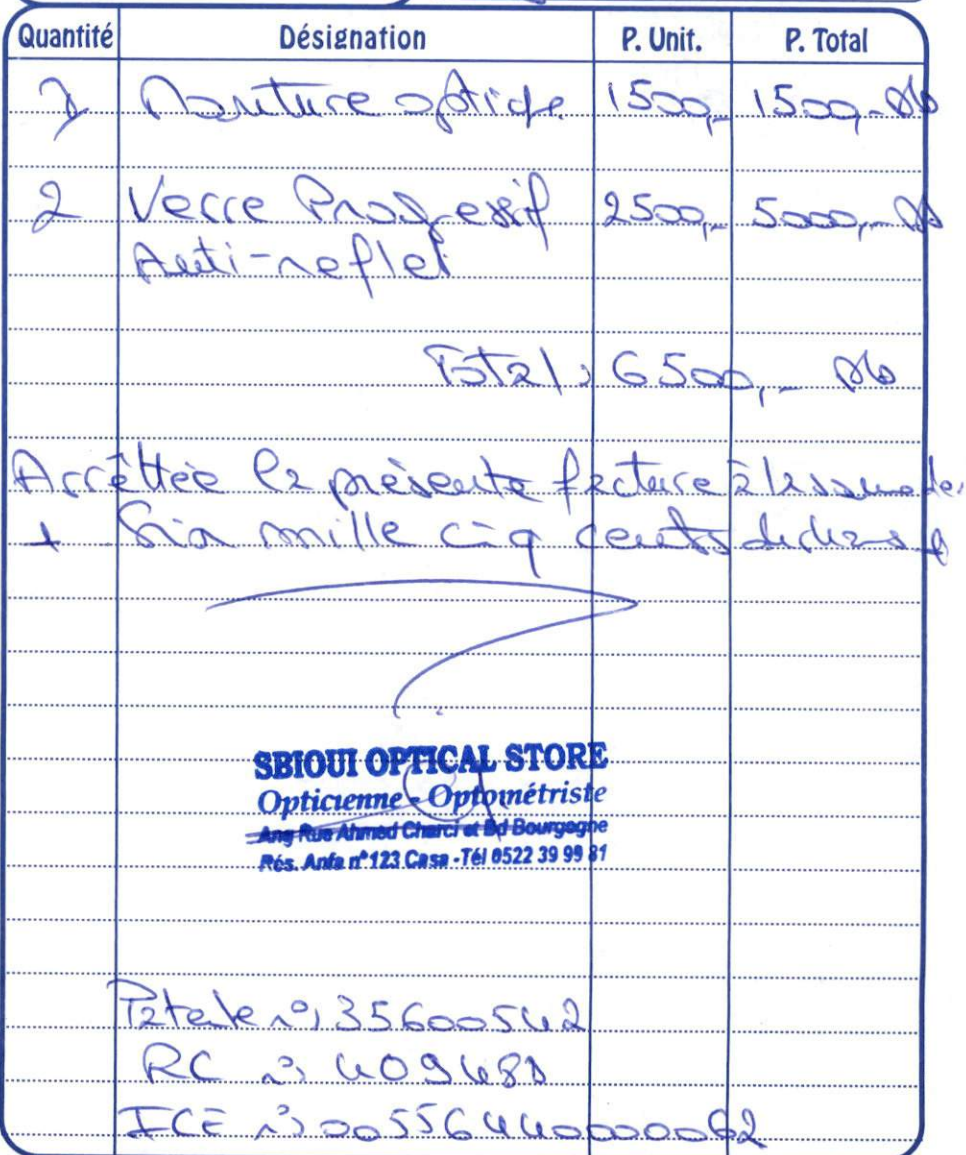 Quantité Désignation P. Unit. P. Total
1 Monture optique 1500,- 1500,-Dh
2 Verre Progressif 2500,- 5000,-Dh
Anti-reflet
Total : 6500,- Dh
Arrêttée la présente facture à la somme de:
+ Six mille cinq cents dirhams
SBIOUI OPTICAL STORE
Opticienne - Optométriste
Ang Rue Ahmed Charci et Bd Bourgogne
Rés. Anfa n° 123 Casa - Tél 0522 39 99 81
Patente n°: 35600542
RC n°:
ICE n°: